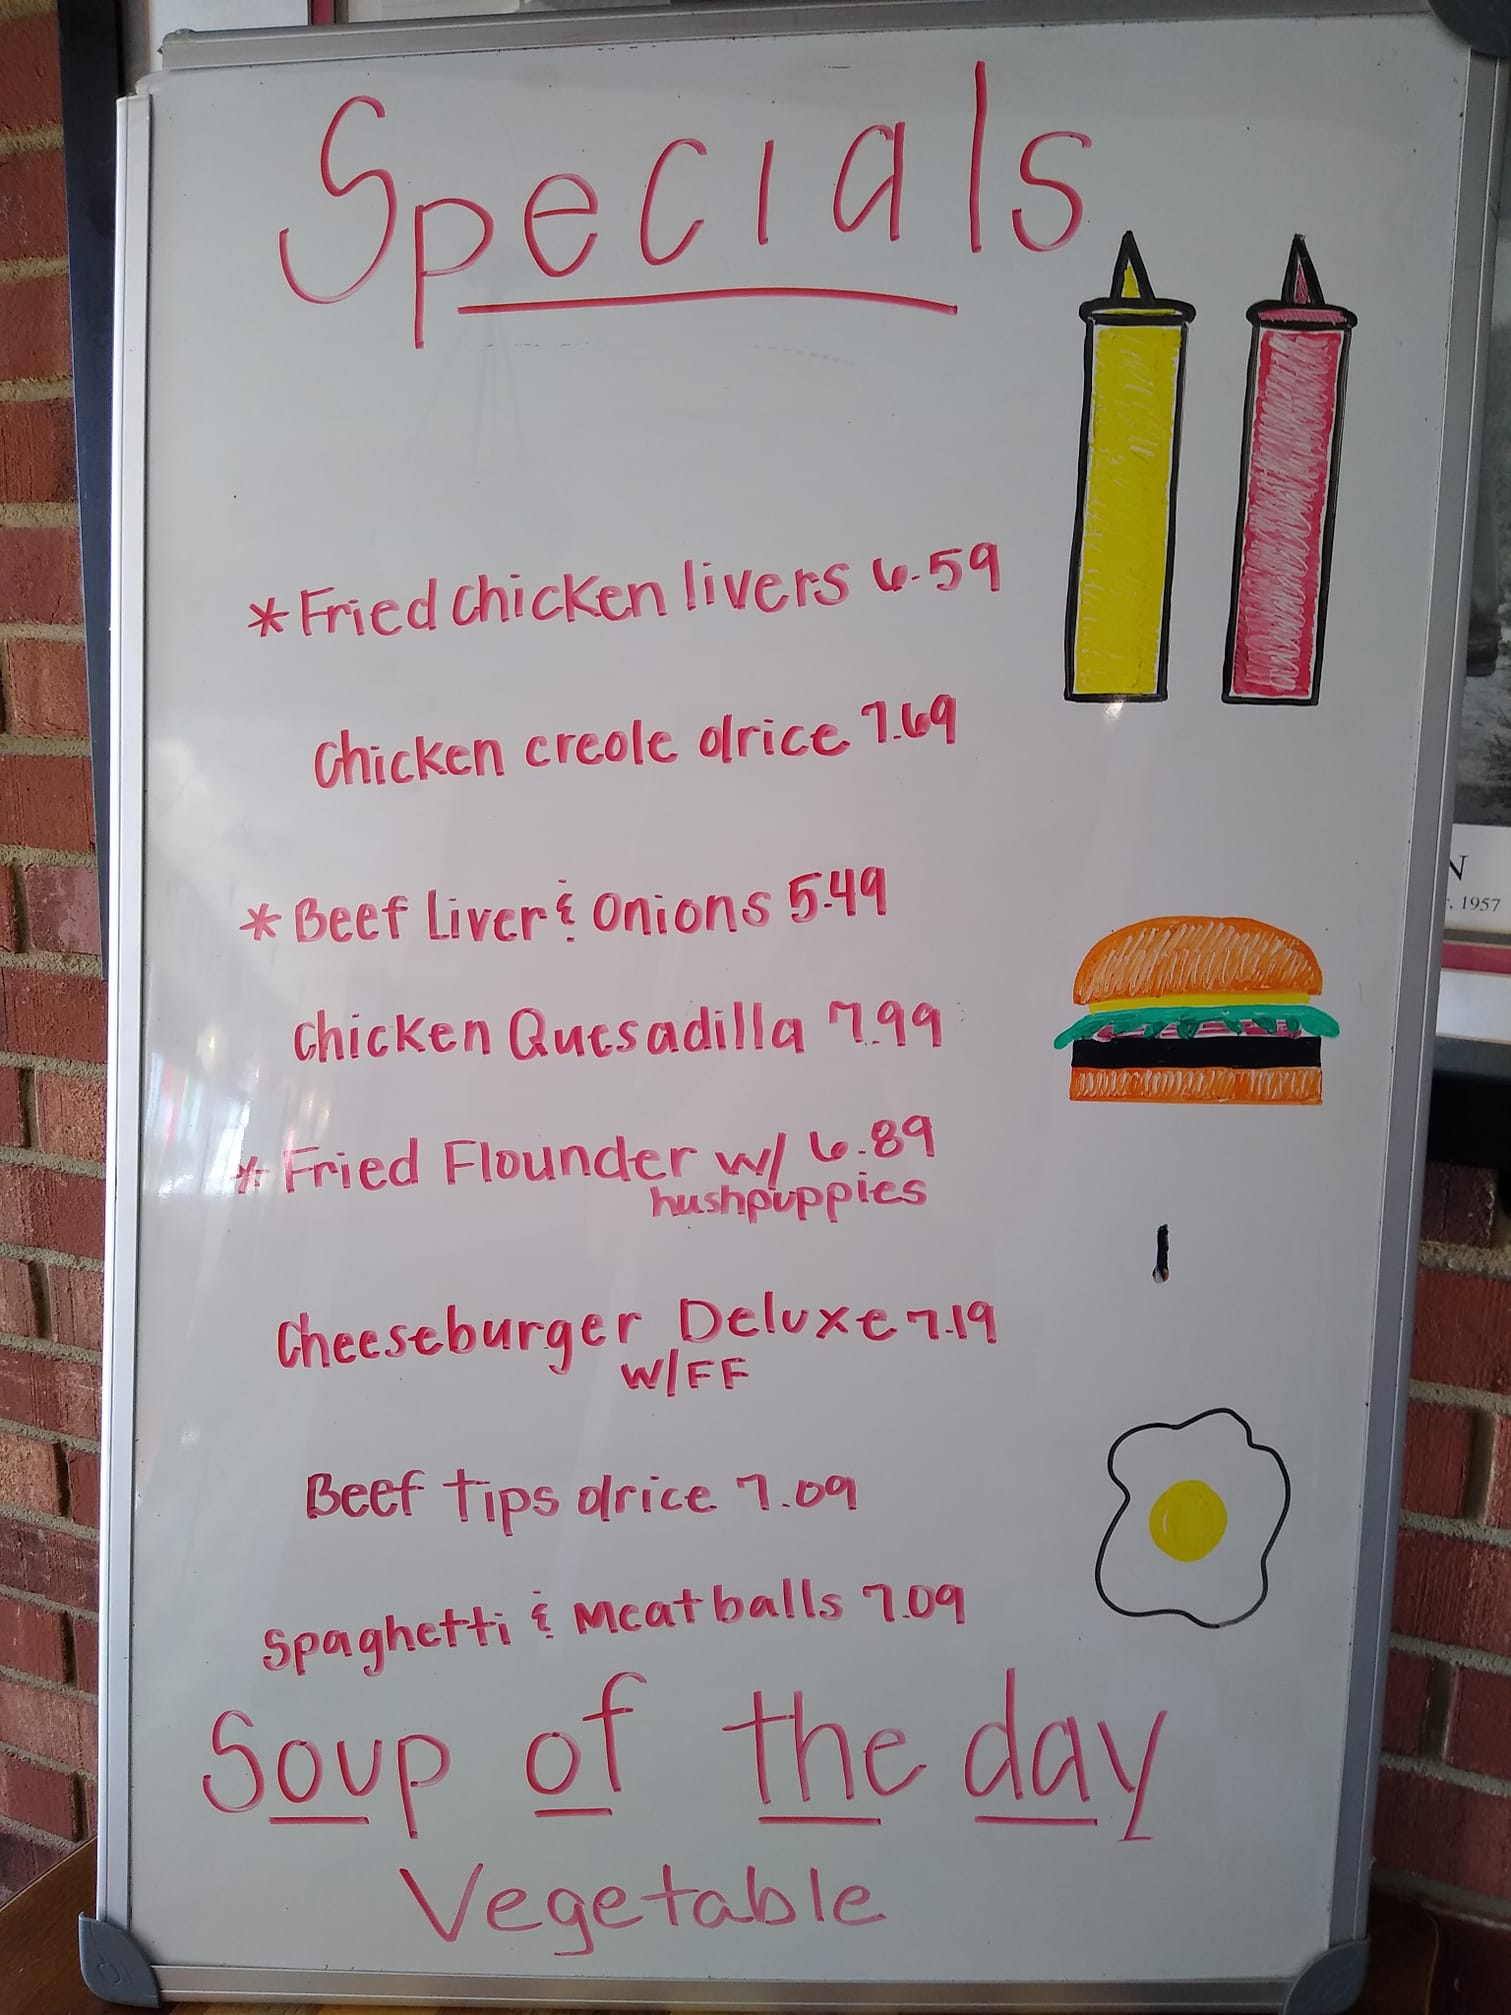 Specials
* Fried chicken livers 6.59
chicken creole o/rice 7.69
* Beef Liver & Onions 5.49
chicken Quesadilla 7.99
* Fried Flounder w/ 6.89
hushpuppies
Cheeseburger Deluxe 7.19
W/FF
Beef tips o/rice 7.09
Spaghetti & Meatballs 7.09
Soup of the day
Vegetable
N
1957